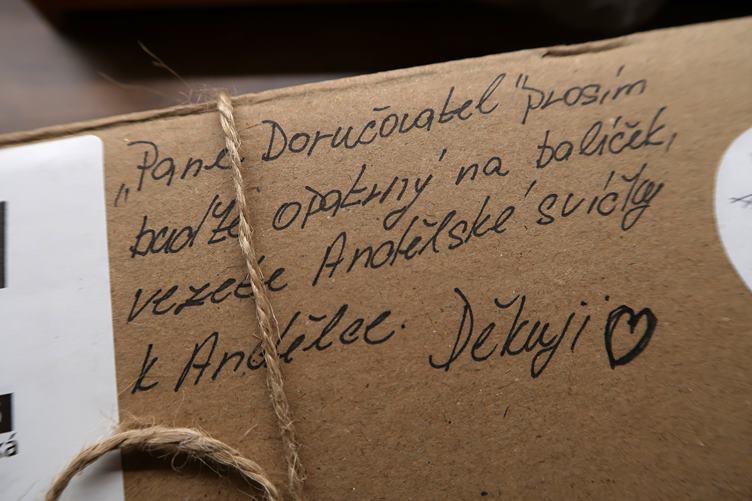 „Pane Doručovatel" prosím
buďte opatrný na balíček,
vezete Andělské svíčky
k Andělce. Děkuji ♡
ká